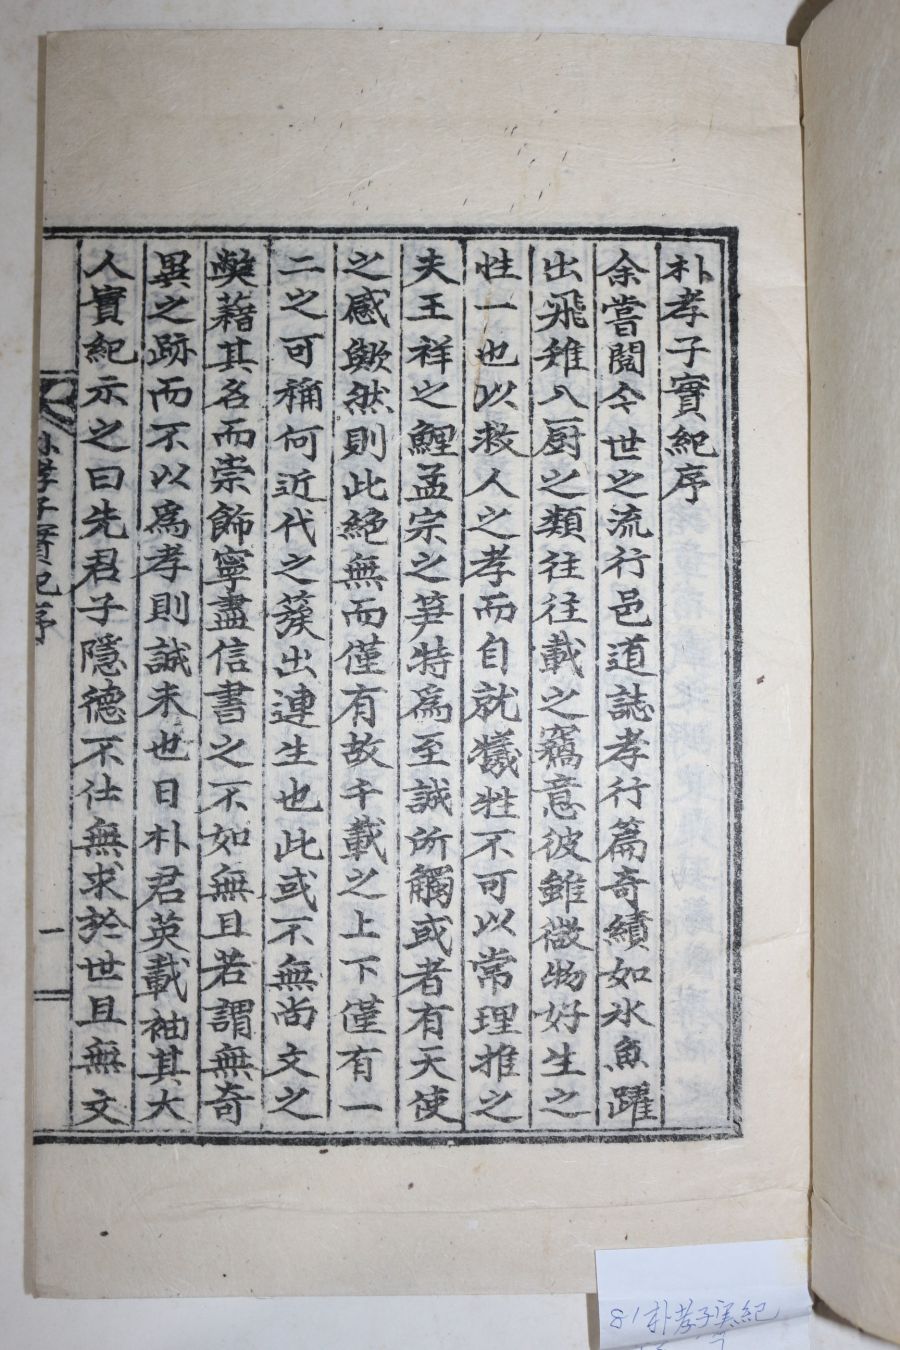 朴孝子實紀序
余嘗閱今世之流行邑道誌孝行篇奇績如氷魚躍
出飛雉入厨之類往往載之竊意彼雖微物好生之
性一也以救人之孝而自就犧牲不可以常理推之
夫王祥之鯉孟宗之笋特爲至誠所觸或者有天使
之感歟然則此絕無而僅有故千載之上下僅有一
二之可稱何近代之蔟出連生也此或不無尚文之
弊藉其名而崇飾寧盡信書之不如無且若謂無奇
異之跡而不以爲孝則誠未也日朴君英載袖其大
人實紀示之曰先君子隱德不仕無求於世且無文
朴孝子實紀序
一
81 朴孝子実紀